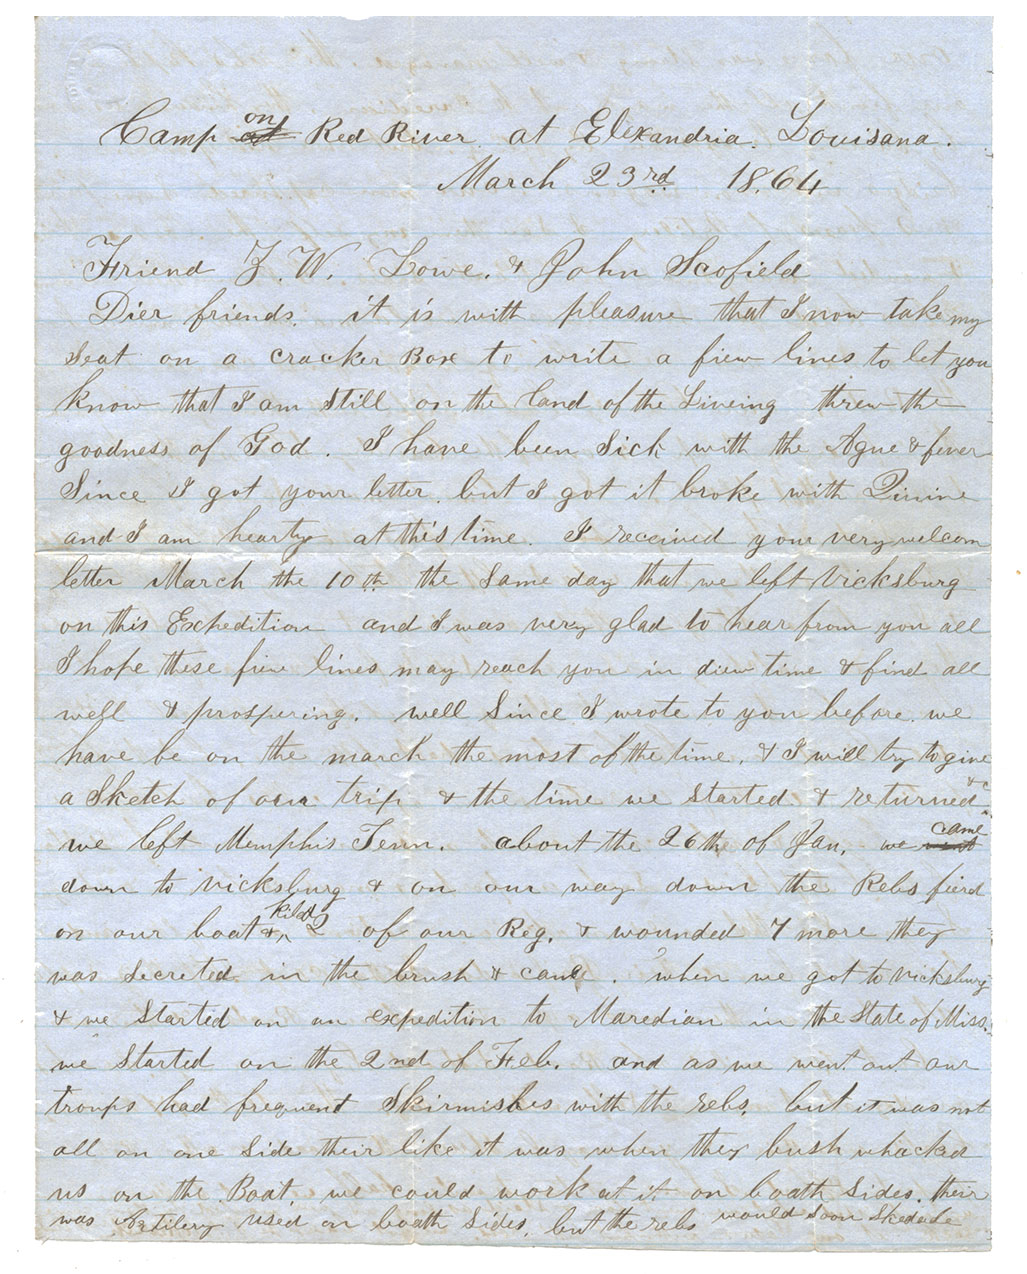 Camp on at Red River. at Elexandria. Louisana.
March 23rd 18.64
Friend Z. W. Lowe. & John Scofield
Dier friends. it is with pleasure that I now take my
Seat on a cracker Box to write a fiew lines to let you
know that I am Still on the land of the Liveing threw the
goodness of God. I have been Sick with the Ague & fever
Since I got your letter. but I got it broke with Quinine
and I am hearty at this time. I received your very welcom
letter March the 10th the Same day that we left Vicksburg
on this Expedition and I was very glad to hear from you all
I hope these fiew lines may reach you in diew time & find all
well & prospering. well Since I wrote to you before. we
have be on the march the most of the time. & I will try to give
a Sketch of our trip & the time we Started & returned &c
we left Memphis Tenn. about the 26th of Jan. we came went
down to Vicksburg & on our way down the Rebs fierd
on our boat & kild 2 of our Reg. & wounded 7 more they
was Secreted in the brush & cane. when we got to Vicksburg
& we Started on an expedition to Maredian in the State of Miss.
we Started on the 2nd of Feb. and as we went out our
troups had frequent Skirmishes with the rebs. but it was not
all on one Side their like it was when they bush whacked
us on the Boat. we could work at it on boath Sides. their
was Artilery used on boath Sides. but the rebs would Soon Skedadle